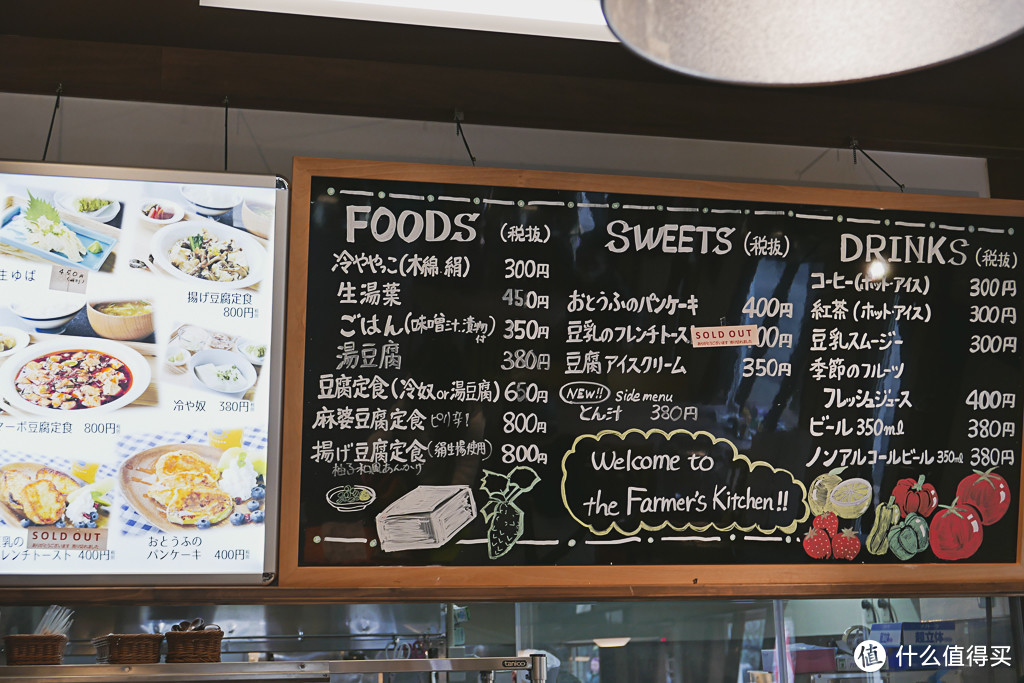 生ゆば
450円
揚げ豆腐定食
800円
冷や奴 380円
マーボ豆腐定食 800円
SOLD OUT
レンチトースト 400円
おとうふの
パンケーキ 400円
FOODS (税抜)
冷ややっこ(木綿.絹) 300円
生湯葉 450円
ごはん(味噌汁.漬物付) 350円
湯豆腐 380円
豆腐定食(冷奴or湯豆腐) 650円
麻婆豆腐定食 ピリ辛! 800円
揚げ豆腐定食(絹生揚使用) 800円
柚子和風あんかけ
SWEETS (税抜)
おとうふのパンケーキ 400円
豆乳のフレンチトース SOLD OUT 00円
豆腐アイスクリーム 350円
NEW!! side menu
とん汁 380円
Welcome to
the Farmer's Kitchen!!
DRINKS (税抜)
コーヒー(ホット・アイス) 300円
紅茶(ホット・アイス) 300円
豆乳スムージー 300円
季節のフルーツ
フレッシュジュース 400円
ビール 350ml 380円
ノンアルコールビール 350ml 380円
tanico
値 什么值得买